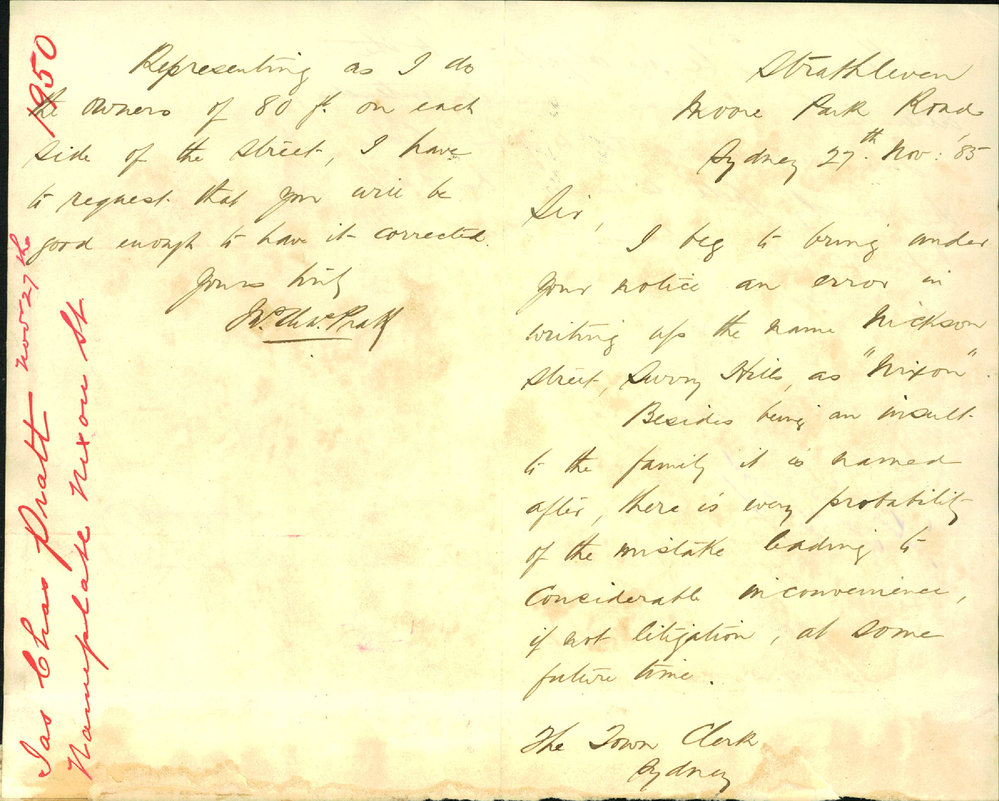 Strathleven
Moore Park Road
Sydney 27th. Nov: '85
Sir,
I beg to bring under
your notice an error in
writing up the name Nickson
street, Surry Hills, as "Nixon".
Besides being an insult
to the family it is named
after, there is every probability
of the mistake leading to
considerable inconvenience,
if not litigation, at some
future time.
The Town Clerk
Sydney
Representing as I do
the owners of 80 ft. on each
side of the street, I have
to request that you will be
good enough to have it corrected
Yours truly
Jas. Chas. Pratt
1950
Jas Chas Pratt Nov 27th
Nameplate Nixon St